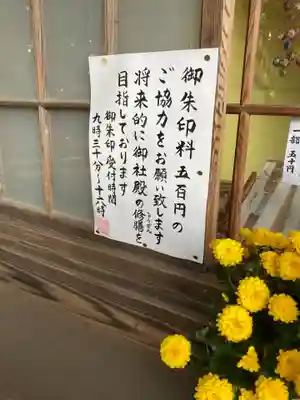 御朱印料五百円の
ご協力をお願い致します
将来的に御社殿の修膳を
しゅうぜん
目指しております
御朱印受付時間
九時三十分~十六時
一部五十円